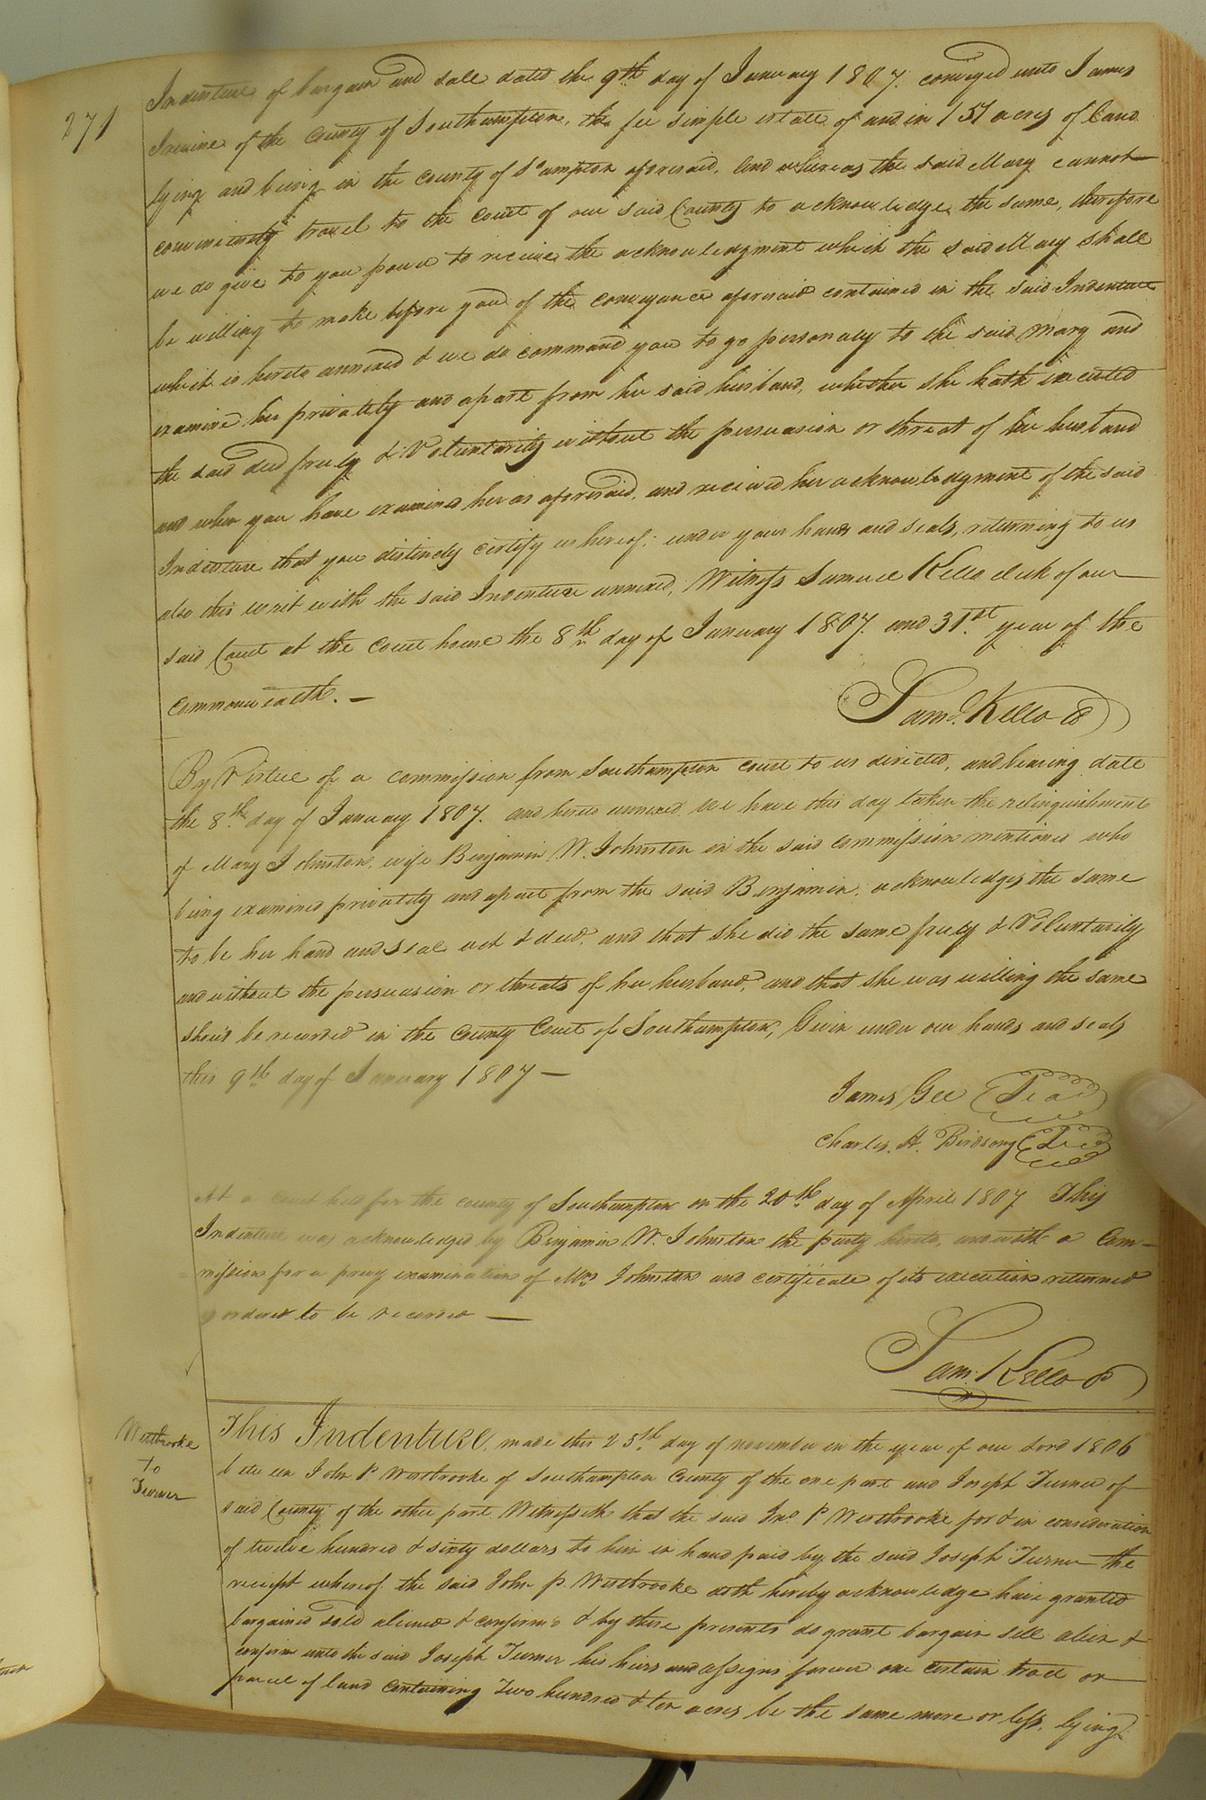 271
Indenture of bargain and sale dated the 9th. day of January 1807. conveyed unto James
of the County of Southampton, the fee simple estate of and in 157 acres of Land
lying and being in the county of S°ampton aforesaid, And whereas the said Mary cannot
conveniently travel to the Court of our said County to acknowledge the same, therefore
we do give to you power to receive the acknowledgment which the said Mary shall
be willing to make before you of the conveyance aforesaid contained in the said Indenture
which is hereto annexed & we do command you to go personally to the said Mary and
examine her privately and apart from her said husband, whether she hath executed
the said deed freely & Voluntarily without the persuasion or threat of her husband
and when you have examined her as aforesaid, and received her acknowledgment of the said
Indenture that you distinctly certify us hereof, under your hands and seals, returning to us
also this writ with the said Indenture annexed, Witness Samuel Kello clerk of our
said Court at the Court house the 8th day of January 1807. and 31st. year of the
Commonwealth. —
Saml. Kello
By Virtue of a commission from Southampton court to us directed, and bearing date
the 8th. day of January 1807. and hereto annexed We have this day taken the relinquishment
of Mary Johnston, wife Benjamin W. Johnston in the said commission mentioned who
being examined privately and apart from the said Benjamin, acknowledges the same
to be her hand and seal act & deed, and that she did the same freely & Voluntarily
and without the persuasion or threats of her husband, and that she was willing the same
should be recorded in the County Court of Southampton, Given under our hands and seals
this 9th day of January 1807 —
James Gee Seal
Charles. H. Birdsong Seal
At a court held for the county of Southampton on the 20th. day of April 1807 This
Indenture was acknowledged by Benjamin W. Johnston the party hereto, and with a Com-
mission for a privy examination of Mrs Johnston and certificate of its execution returned
ordered to be recorded —
Sam. Kello
Westbrooke
to
Turner
This Indenture, made this 25th. day of november in the year of our Lord 1806
between John P Westbrooke of Southampton County of the one part and Joseph Turner of
said County of the other part Witnesseth that the said Jno. P Westbrooke for & in consideration
of twelve hundred & sixty dollars to him in hand paid by the said Joseph Turner the
receipt whereof the said John P. Westbrooke doth hereby acknowledge have granted
bargained sold aliened & confirmd & by these presents do grant bargain sell alien &
confirm unto the said Joseph Turner his heirs and assigns forever one certain tract or
parcel of land containing Two hundred & ten acres be the same more or less, lying